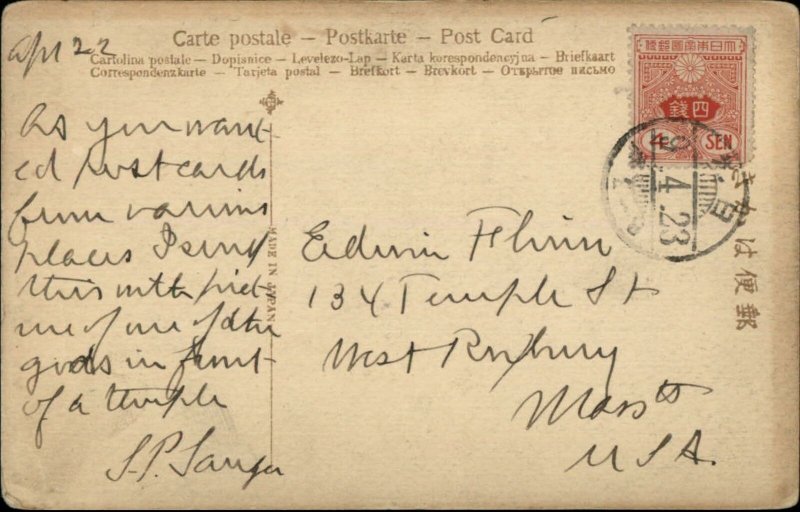 Carte postale – Postkarte – Post Card
Cartolina postale – Dopisnice – Levelezo-Lap – Karta korespondencyjna – Briefkaart
Correspondenzkarte – Tarjeta postal – Brefkort – Brevkort – Открытое письмо
Apl 22
As you want-
ed postcards
from various
places I send
this with pict-
ure of one of the
gods in front
of a temple
S.P.
MADE IN JAPAN
Edwin Flinn
134 Temple St
West Roxbury
Masstts
U S A.
大日本帝國郵便
四錢
4 SEN
4.23
郵便はかき